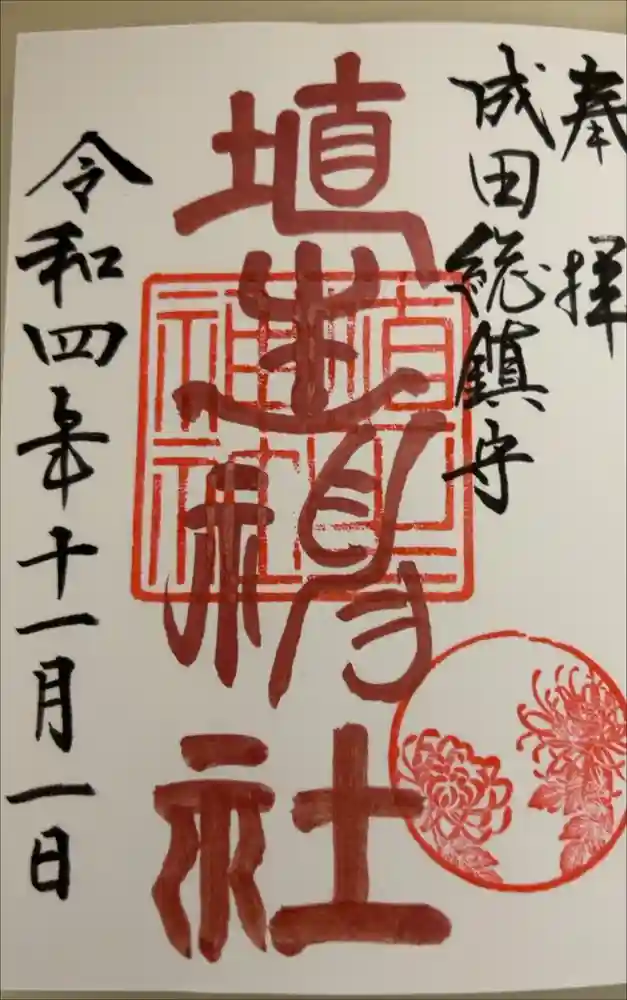 奉拝
成田総鎮守
埴生神社
埴生
神社
令和四年十一月一日